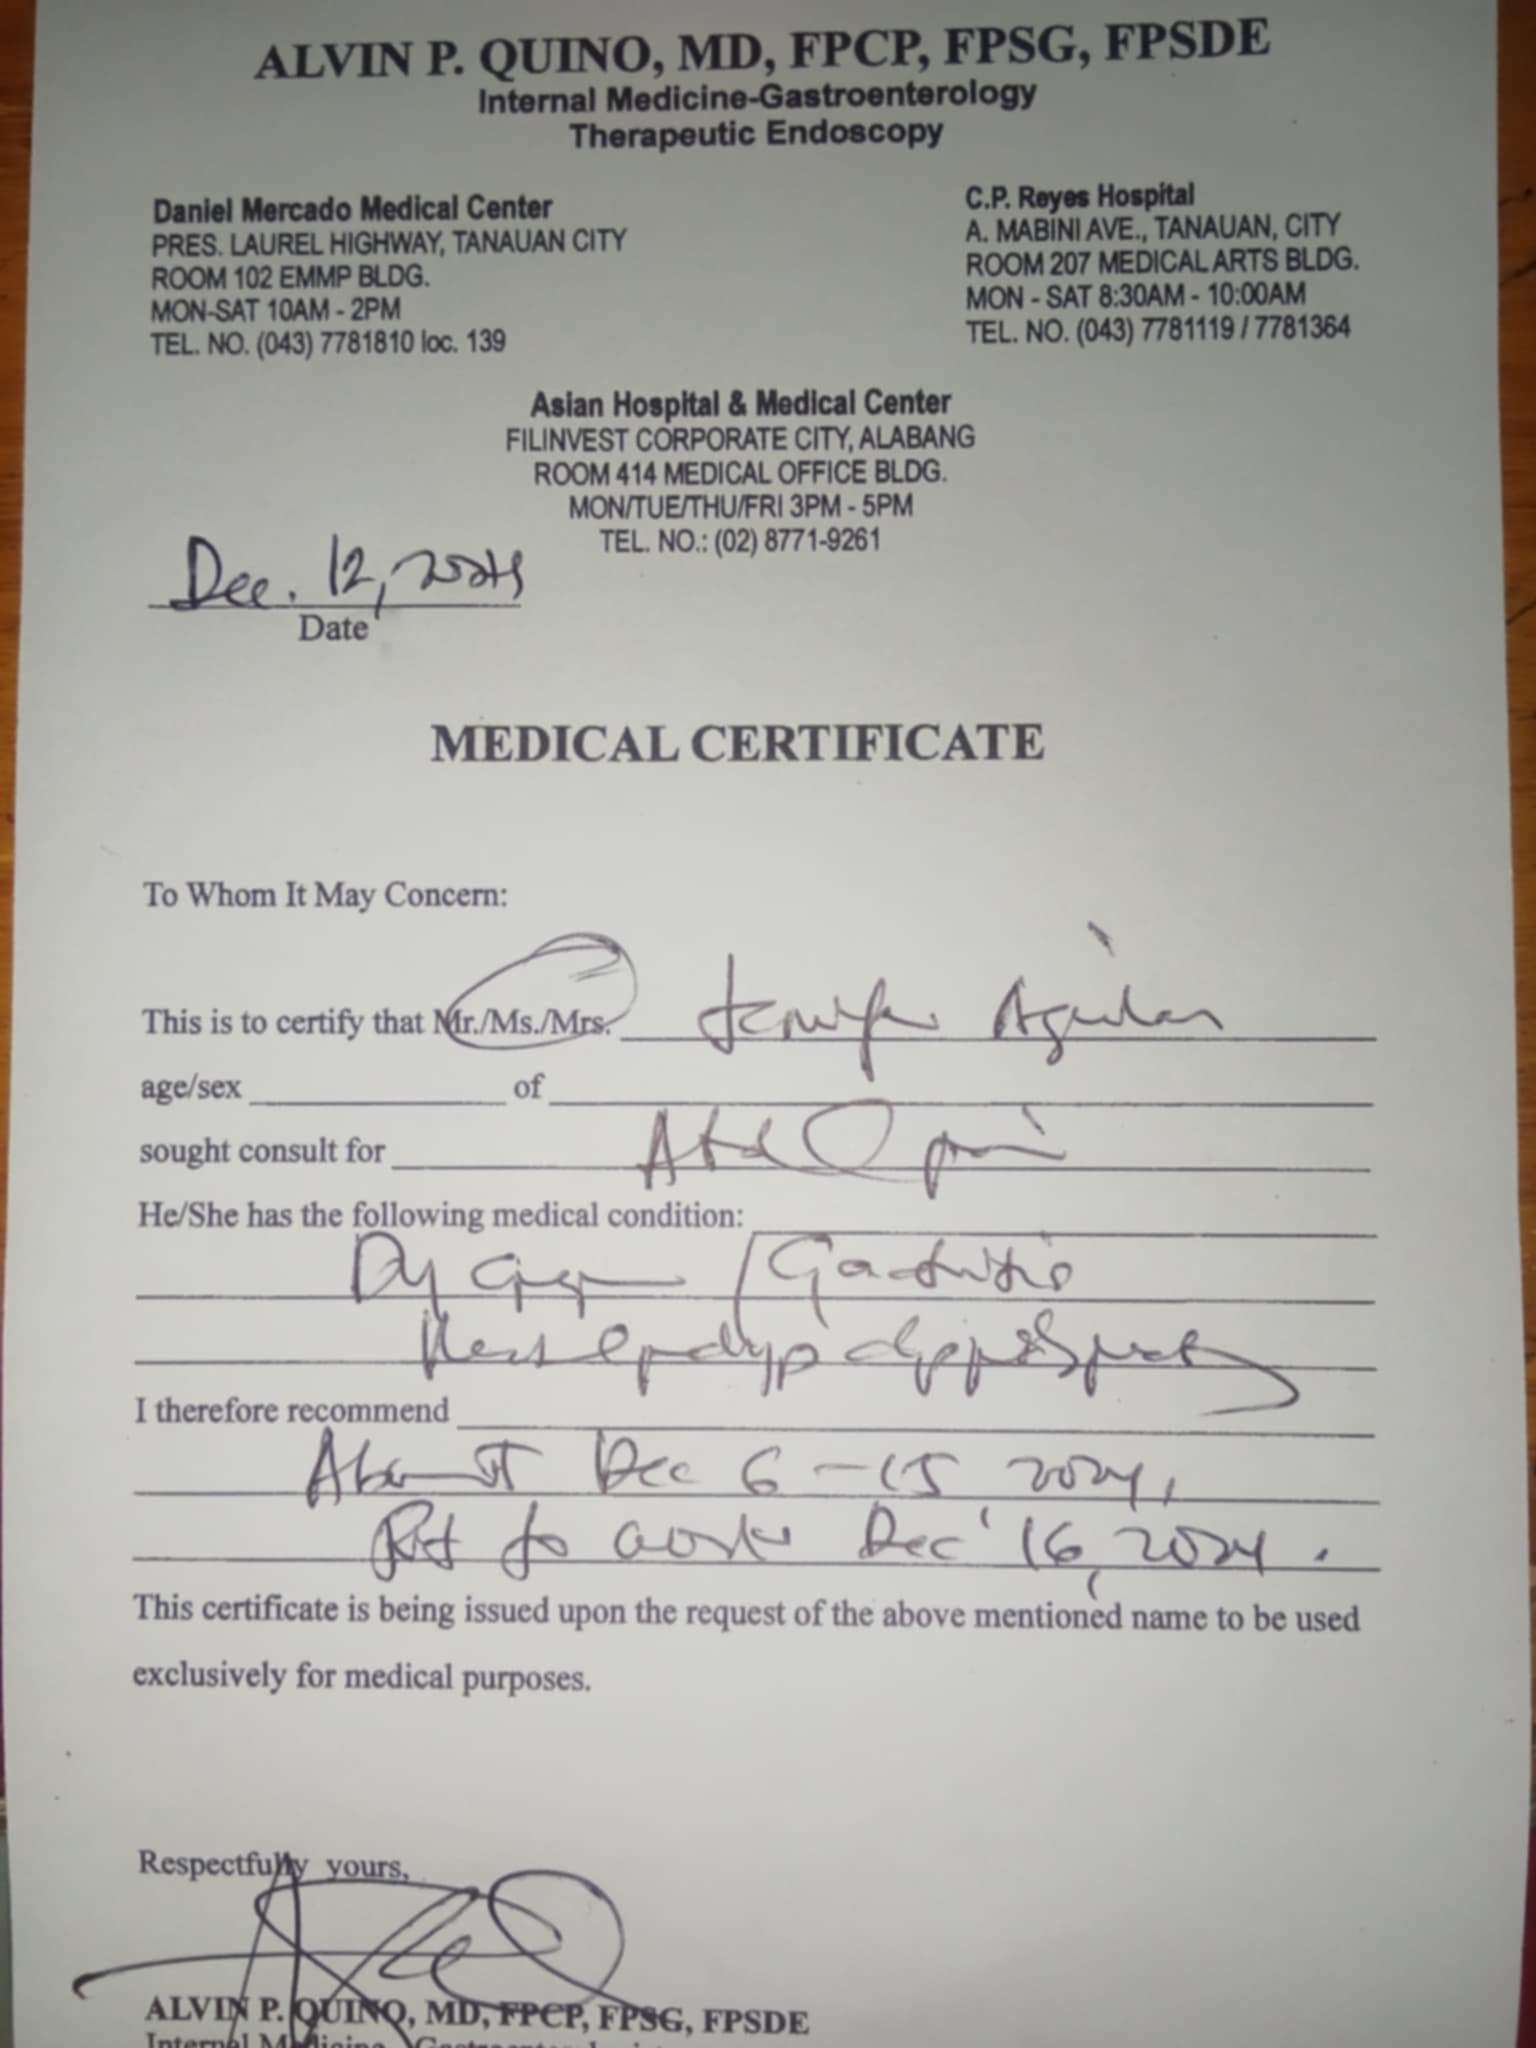 ALVIN P. QUINO, MD, FPCP, FPSG, FPSDE
Internal Medicine-Gastroenterology
Therapeutic Endoscopy
Daniel Mercado Medical Center
PRES. LAUREL HIGHWAY, TANAUAN CITY
ROOM 102 EMMP BLDG.
MON-SAT 10AM - 2PM
TEL. NO. (043) 7781810 loc. 139
C.P. Reyes Hospital
A. MABINI AVE., TANAUAN, CITY
ROOM 207 MEDICAL ARTS BLDG.
MON - SAT 8:30AM - 10:00AM
TEL. NO. (043) 7781119 / 7781364
Asian Hospital & Medical Center
FILINVEST CORPORATE CITY, ALABANG
ROOM 414 MEDICAL OFFICE BLDG.
MON/TUE/THU/FRI 3PM - 5PM
TEL. NO.: (02) 8771-9261
Dec. 12, 2024
Date
MEDICAL CERTIFICATE
To Whom It May Concern:
This is to certify that Mr./Ms./Mrs. Jennifer Aguilar
age/sex of
sought consult for
He/She has the following medical condition:
Gastritis
I therefore recommend
Absent Dec 6-15 2024,
to work Dec 16, 2024.
This certificate is being issued upon the request of the above mentioned name to be used
exclusively for medical purposes.
Respectfully yours,
ALVIN P. QUINO, MD, FPCP, FPSG, FPSDE
Internal Medicine